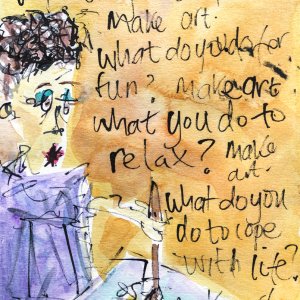 Make art.
what do you do for
fun? Make art
what you do to
relax? Make
art.
what do you
do to cope
with life?